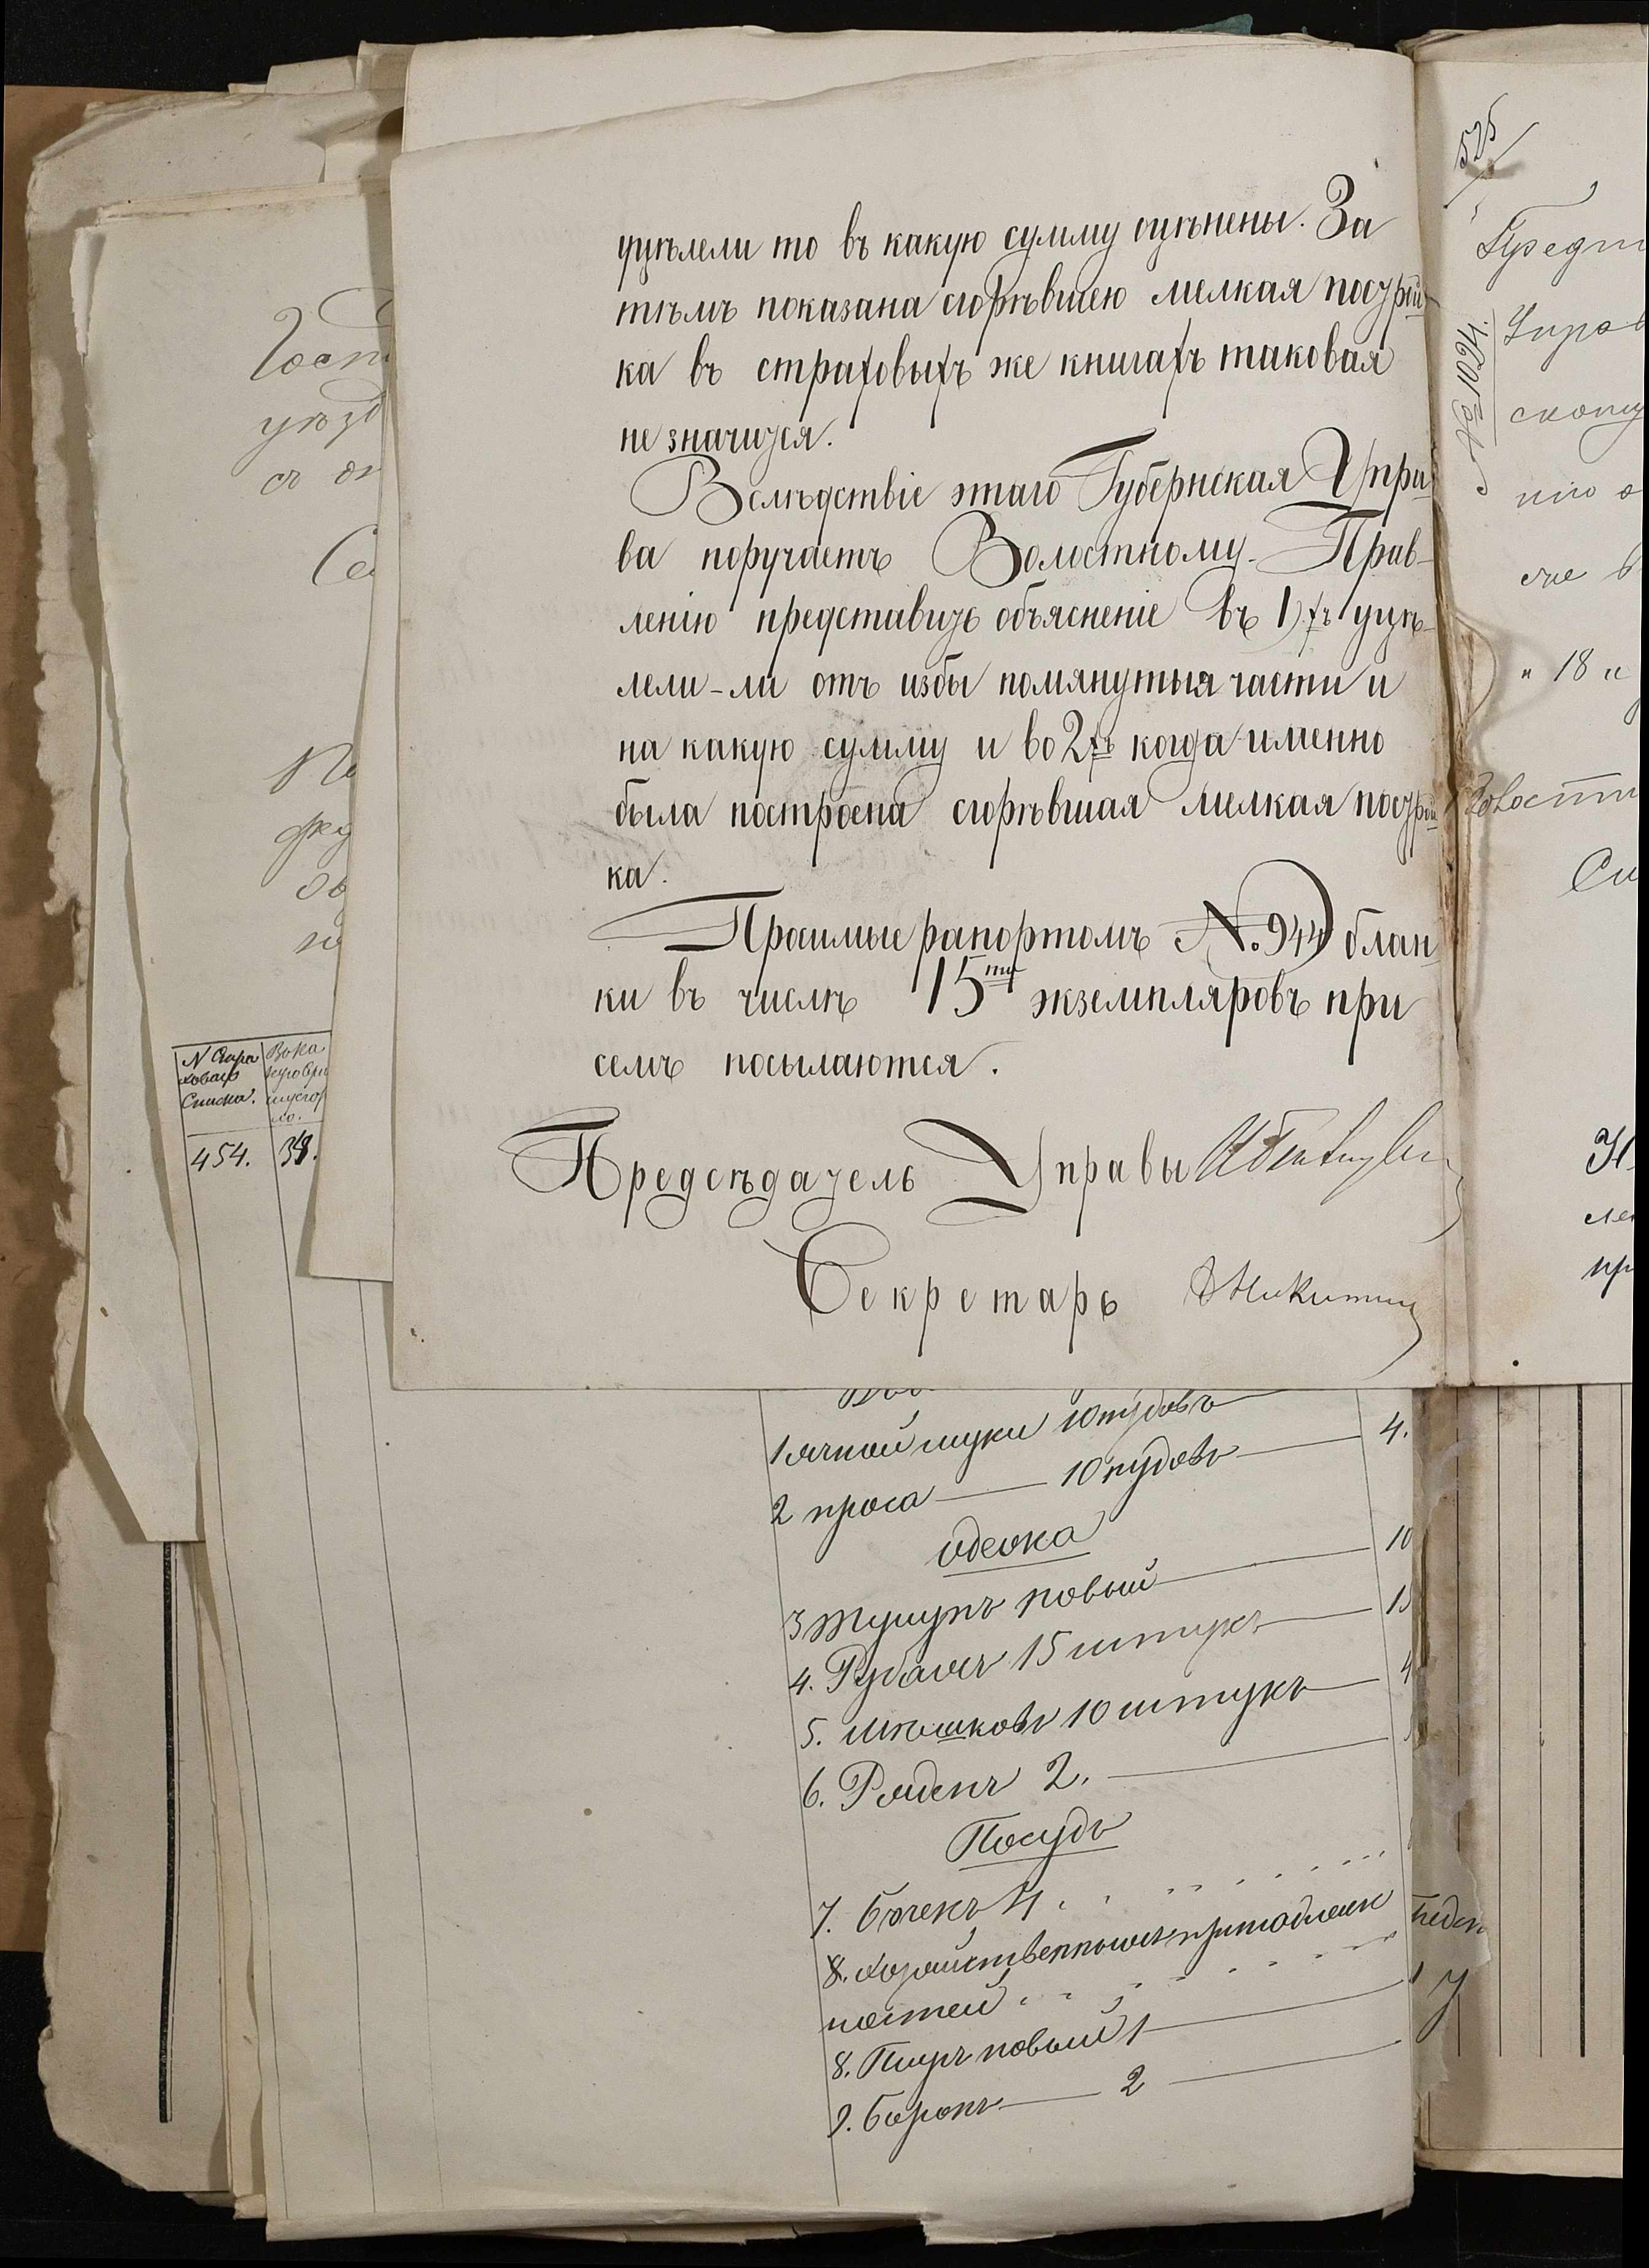 уцѣлели то въ какую сумму оцѣнены. За
тѣмъ показана сгорѣвшею мелкая построй
ка въ страховыхъ же книгахъ таковая
не значится.
Вслѣдствіе этаго Губернская Упра
ва поручаетъ Волостному Прав-
ленію представить объясненіе въ 1) хъ уцѣ-
лели-ли отъ избы помянутыя части и
на какую сумму и во 2хъ когда именно
была построена сгорѣвшая мелкая построй
ка.
Просимые рапортомъ №944 блан
ки въ числѣ 15ти экземпляровъ при
семъ посылаются.
Предсѣдатель Управы
Секретарь Никитин
Гост
уѣзд
N Страховаго Списка.
454. 348.
1 ячной муки 10 пудовъ
4.
2 проса — 10 пудовъ
одежа
10
3 тулупъ новый
4. Рубахъ 15 штукъ
15
5. мѣшковъ 10 штукъ
4
6. 2.
Посуды
7. бочекъ 4
8. хозяйственныхъ принадлеж
ностей
8. Плугъ новый 1
9. боронъ — 2
525
№ 1024.
Предст
Управ
скому
" 18 "
Волостн